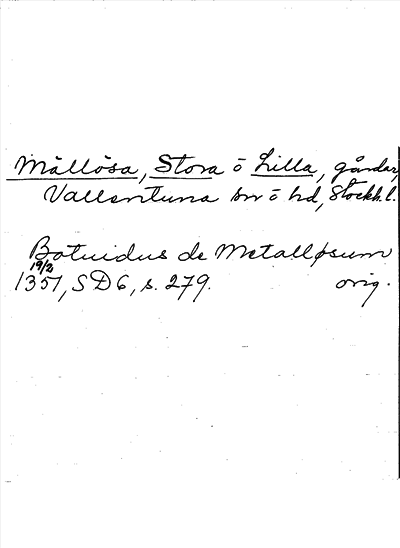 Mällösa, Stora o Lilla, gårdar,
Vallentuna sn o hd, Stockh. l.
Botuidus de Metalløsum
19/2
1351, SD 6, s. 279. orig.